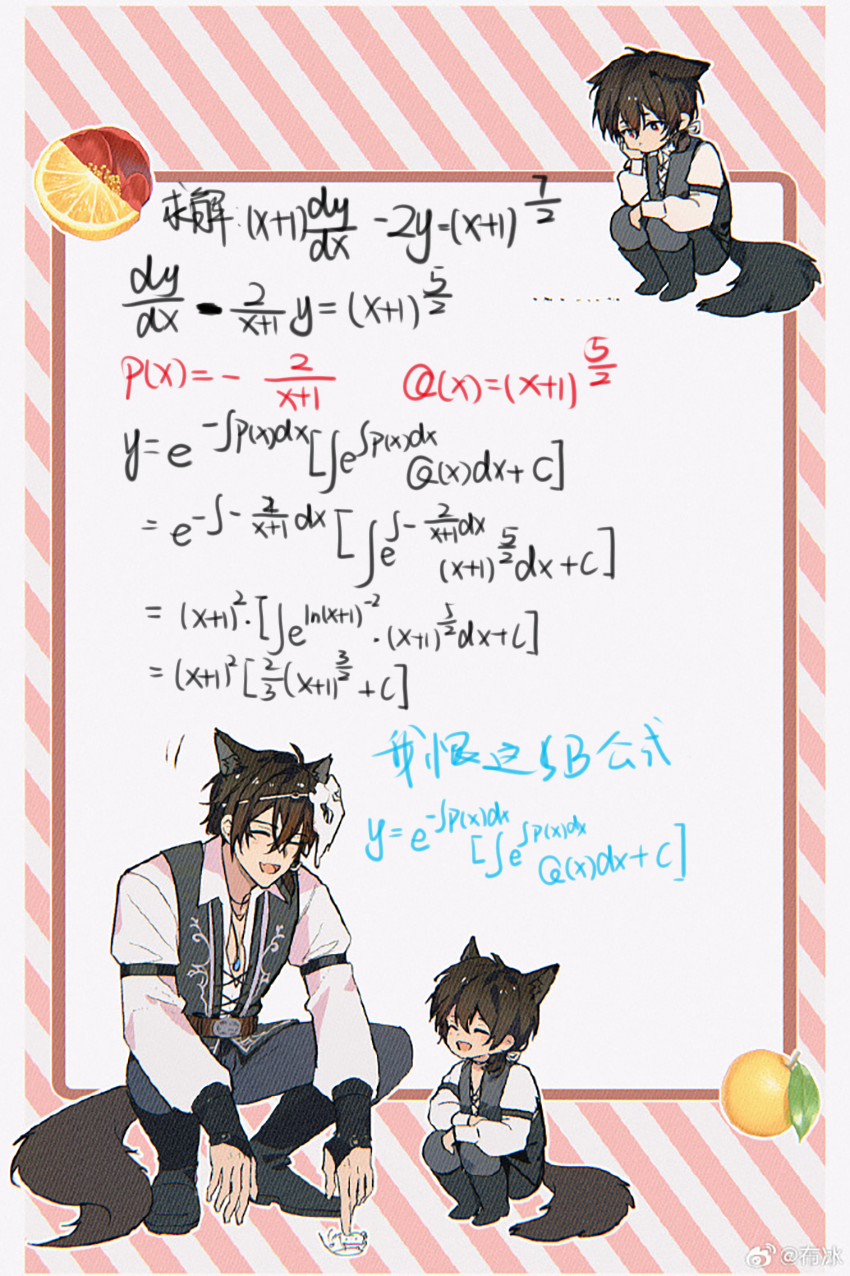 求解:(x+1)dy/dx -2y=(x+1)^(7/2)
dy/dx - 2/(x+1) y=(x+1)^(5/2)
P(x)=- 2/(x+1) Q(x)=(x+1)^(5/2)
y=e^(-∫P(x)dx)[∫e^(∫P(x)dx) Q(x)dx+C]
=e^(-∫- 2/(x+1) dx)[∫e^(∫- 2/(x+1) dx) (x+1)^(5/2)dx+C]
=(x+1)^2·[∫e^(ln(x+1)^(-2))·(x+1)^(5/2)dx+C]
=(x+1)^2[2/3(x+1)^(3/2)+C]
我恨这SB公式
y=e^(-∫P(x)dx)[∫e^(∫P(x)dx) Q(x)dx+C]
@布冰